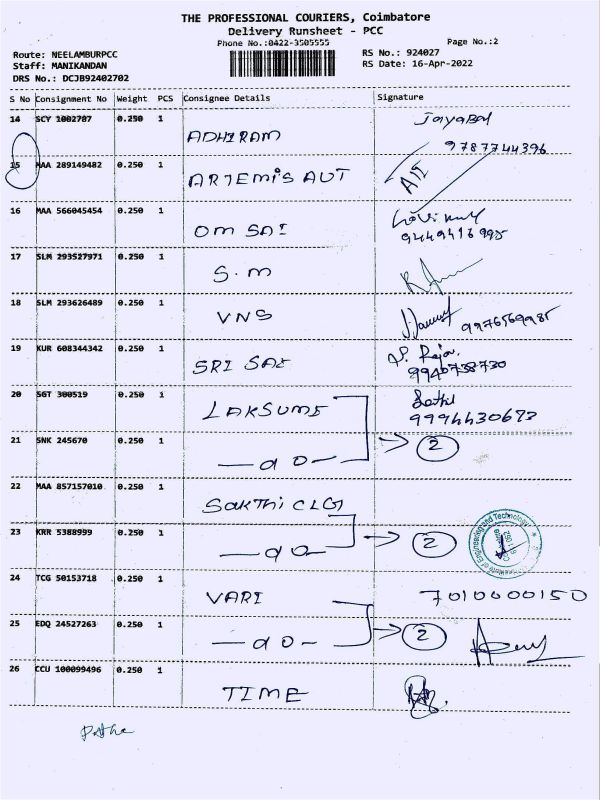 THE PROFESSIONAL COURIERS, Coimbatore
Delivery Runsheet - PCC
Phone No.:0422-3505555
Page No.:2
Route: NEELAMBURPCC
RS No.: 924027
Staff: MANIKANDAN
RS Date: 16-Apr-2022
DRS No.: DCJB92402702
S No Consignment No Weight PCS Consignee Details Signature
14 SCY 1002787 0.250 1 ADHIRAM Jayabal
9787744396
15 MAA 289149482 0.250 1 ARTEMIS AUT
16 MAA 566045454 0.250 1 OM SAI
9449416995
17 SLM 293527971 0.250 1 S.M
18 SLM 293626489 0.250 1 VNS 9976569985
19 KUR 608344342 0.250 1 SRI SAI P. Raja.
9940738730
20 SGT 300519 0.250 1 LAKSUMI
9994430673
21 SNK 245670 0.250 1 — d o — 2
22 MAA 857157010 0.250 1 Sakthi CLG
23 KRR 5388999 0.250 1 — d o 2
Institute of Engineering and Technology
24 TCG 50153718 0.250 1 VARI 7010000150
25 EDQ 24527263 0.250 1 — d o — 2
26 CCU 100099496 0.250 1 TIME